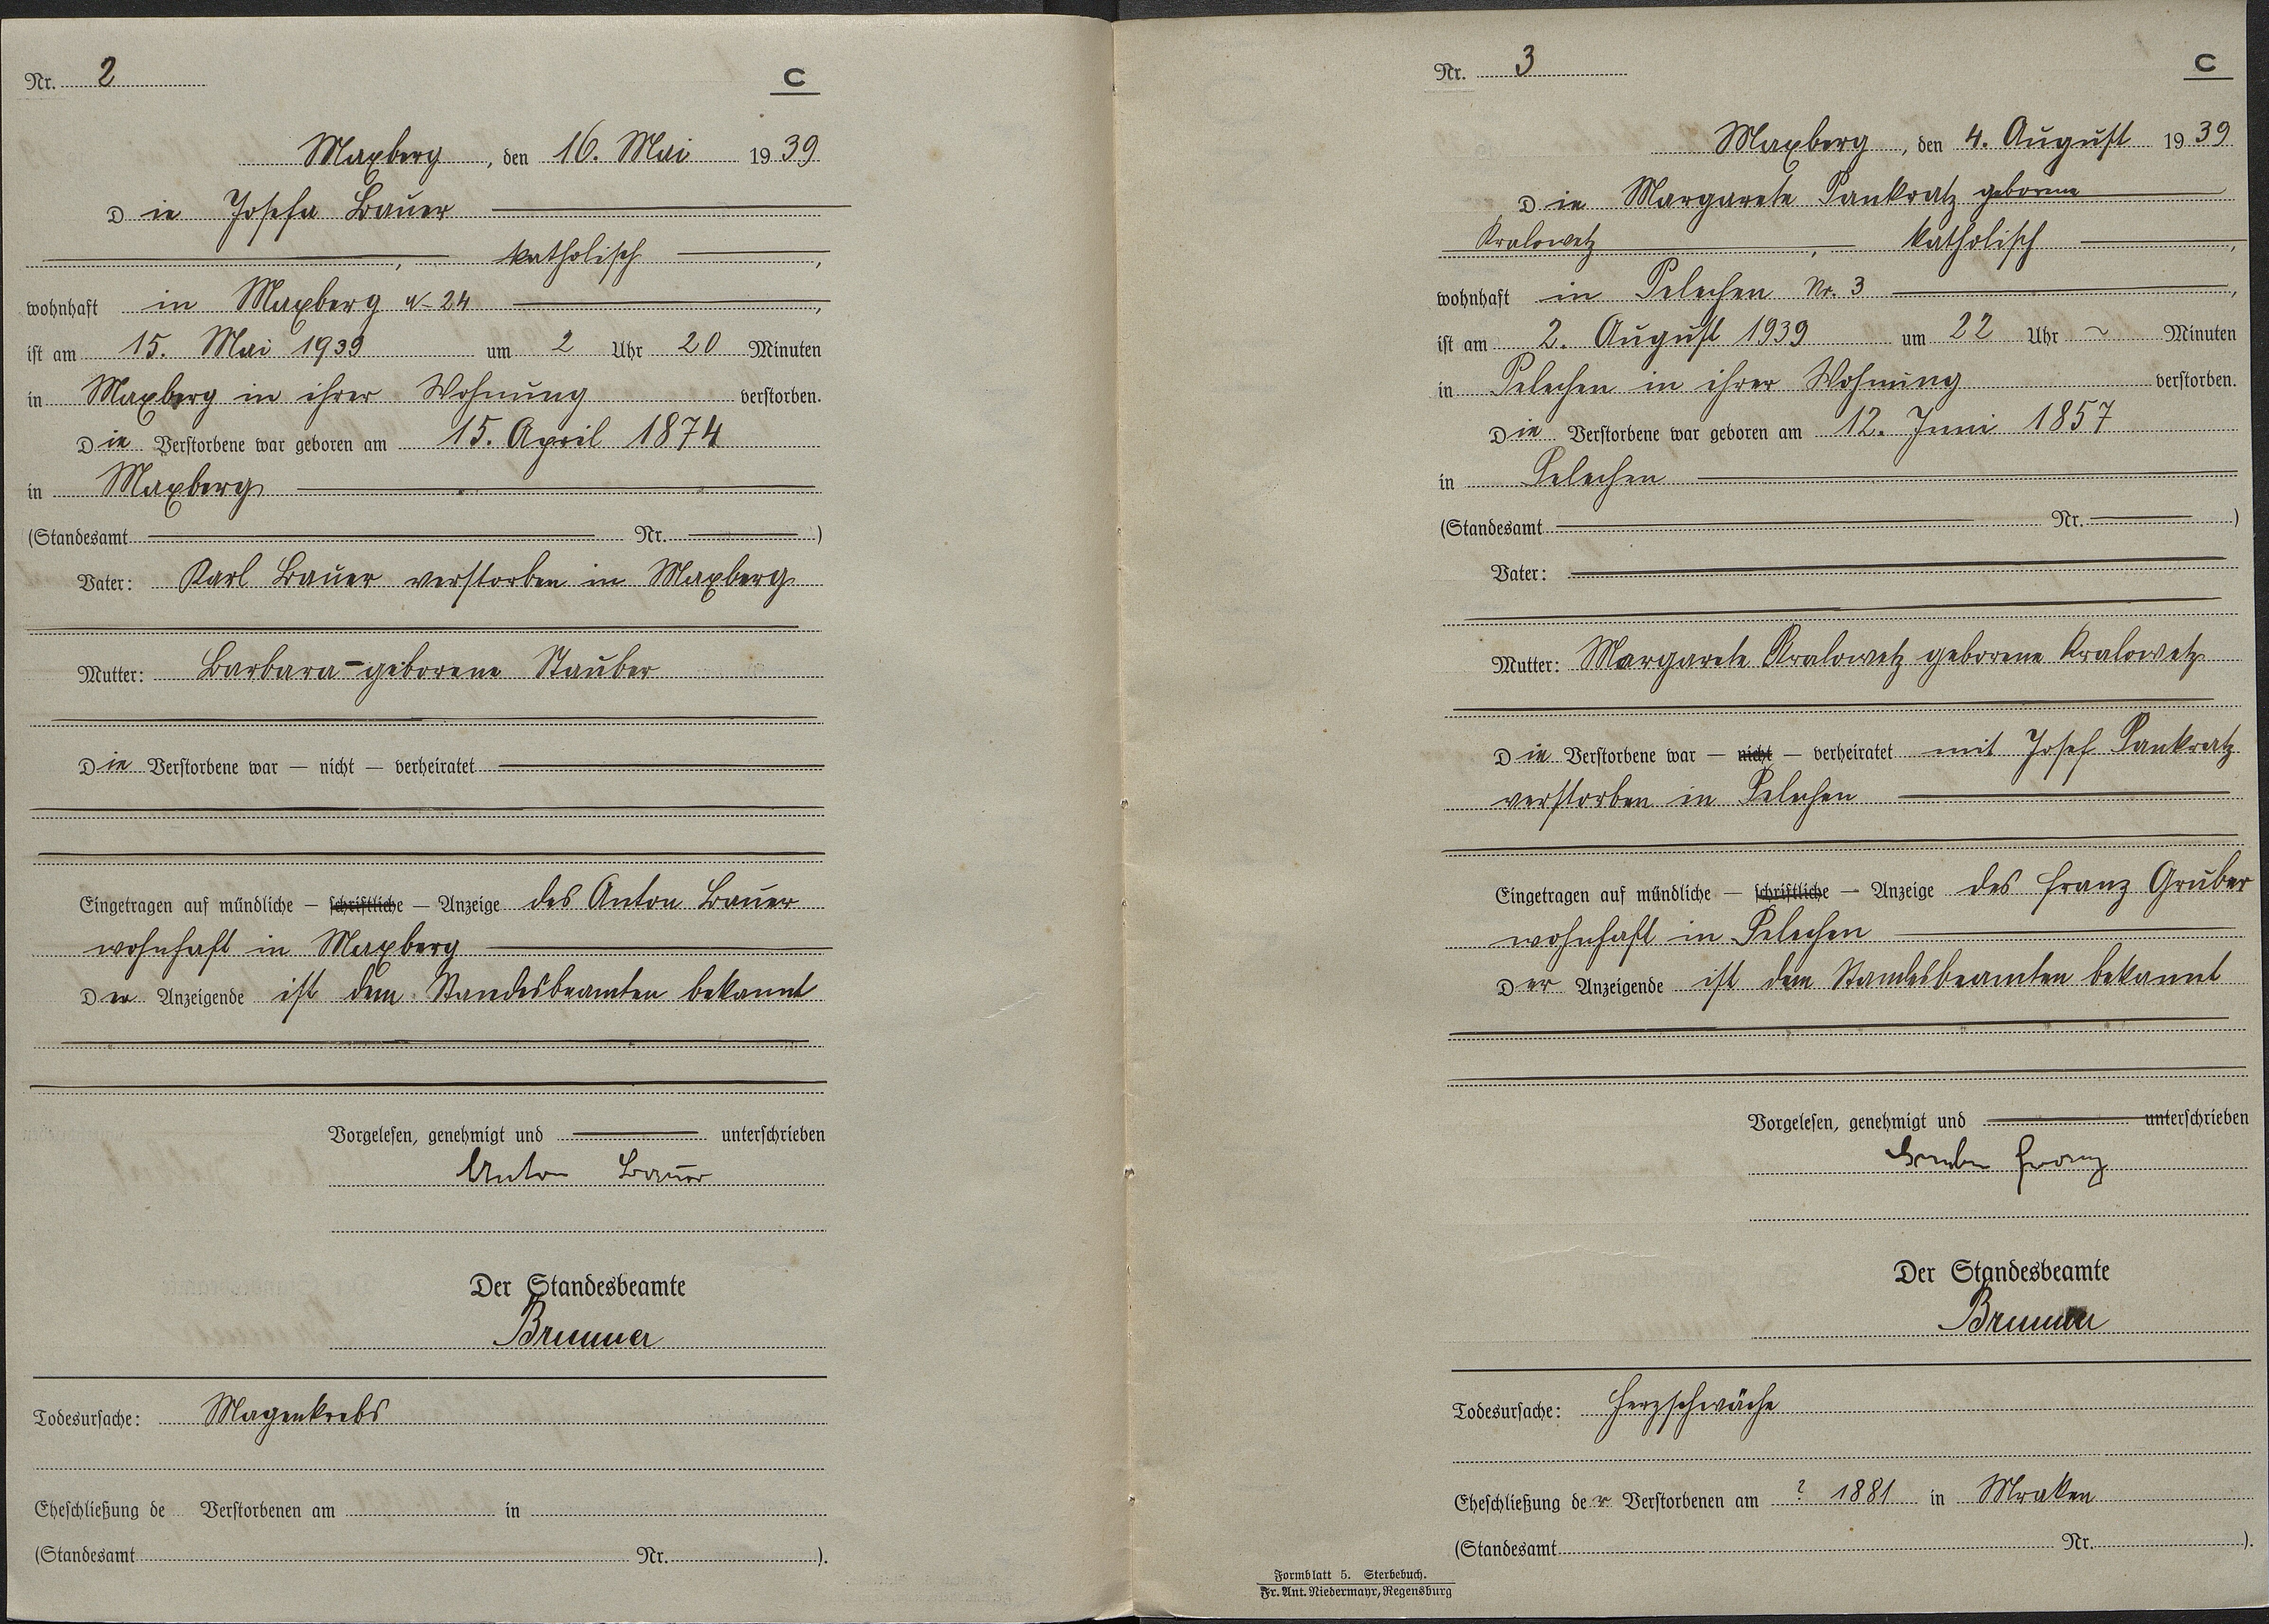 Nr. 2
C
Maxberg, den 16. Mai 1939
Die Josefa Bauer
, katholisch,
wohnhaft in Maxberg N- 24,
ist am 15. Mai 1939 um 2 Uhr 20 Minuten
in Maxberg in ihrer Wohnung verstorben.
Die Verstorbene war geboren am 15. April 1874
in Maxberg
(Standesamt Nr. )
Vater: Karl Bauer verstorben in Maxberg
Mutter: Barbara geborene Stauber
Die Verstorbene war — nicht — verheiratet
Eingetragen auf mündliche — schriftliche — Anzeige des Anton Bauer
wohnhaft in Maxberg
Der Anzeigende ist dem Standesbeamten bekannt
Vorgelesen, genehmigt und unterschrieben
Anton Bauer
Der Standesbeamte
Brunner
Todesursache: Magenkrebs
Eheschließung de Verstorbenen am in
(Standesamt Nr. ).
Nr. 3
C
Maxberg, den 4. August 1939
Die Margarete Pankratz geborene
Kralowetz, katholisch,
wohnhaft in Pelechen Nr. 3,
ist am 2. August 1939 um 22 Uhr ~ Minuten
in Pelechen in ihrer Wohnung verstorben.
Die Verstorbene war geboren am 12. Juni 1857
in Pelechen
(Standesamt Nr. )
Vater:
Mutter: Margarete Kralowetz geborene Kralowetz
Die Verstorbene war — nicht — verheiratet mit Josef Pankratz
verstorben in Pelechen
Eingetragen auf mündliche — schriftliche — Anzeige des Franz Gruber
wohnhaft in Pelechen
Der Anzeigende ist dem Standesbeamten bekannt
Vorgelesen, genehmigt und unterschrieben
Gruber Franz
Der Standesbeamte
Brunner
Todesursache: Herzschwäche
Eheschließung der Verstorbenen am ? 1881 in Mraken
(Standesamt Nr. ).
Formblatt 5. Sterbebuch.
Fr. Ant. Niedermayr, Regensburg